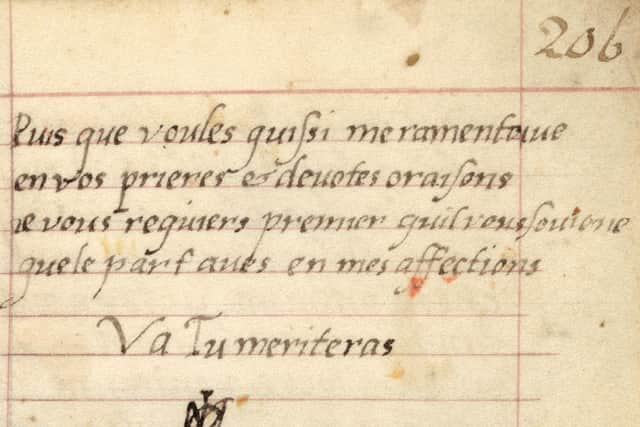 206
Puis que voules quissi me ramentoiue
en vos prieres & deuotes oraisons
ie vous requiers premier quil vous souuiene
quele part aues en mes affections
Va Tu meriteras